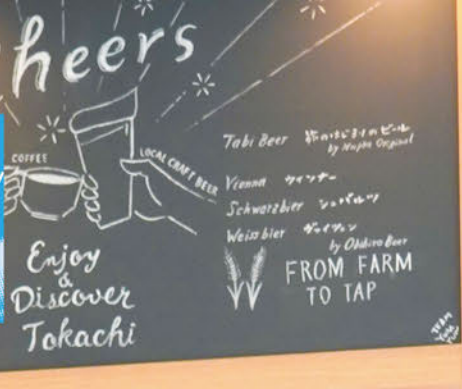 heers
COFFEE
LOCAL CRAFT BEER
Tabi Beer 旅のはじまりのビール
by Nupka Original
Vienna ウィンナー
Schwarzbier シュバルツ
Weissbier ヴァイツェン
by Obihiro Beer
Enjoy
&
Discover
Tokachi
FROM FARM
TO TAP